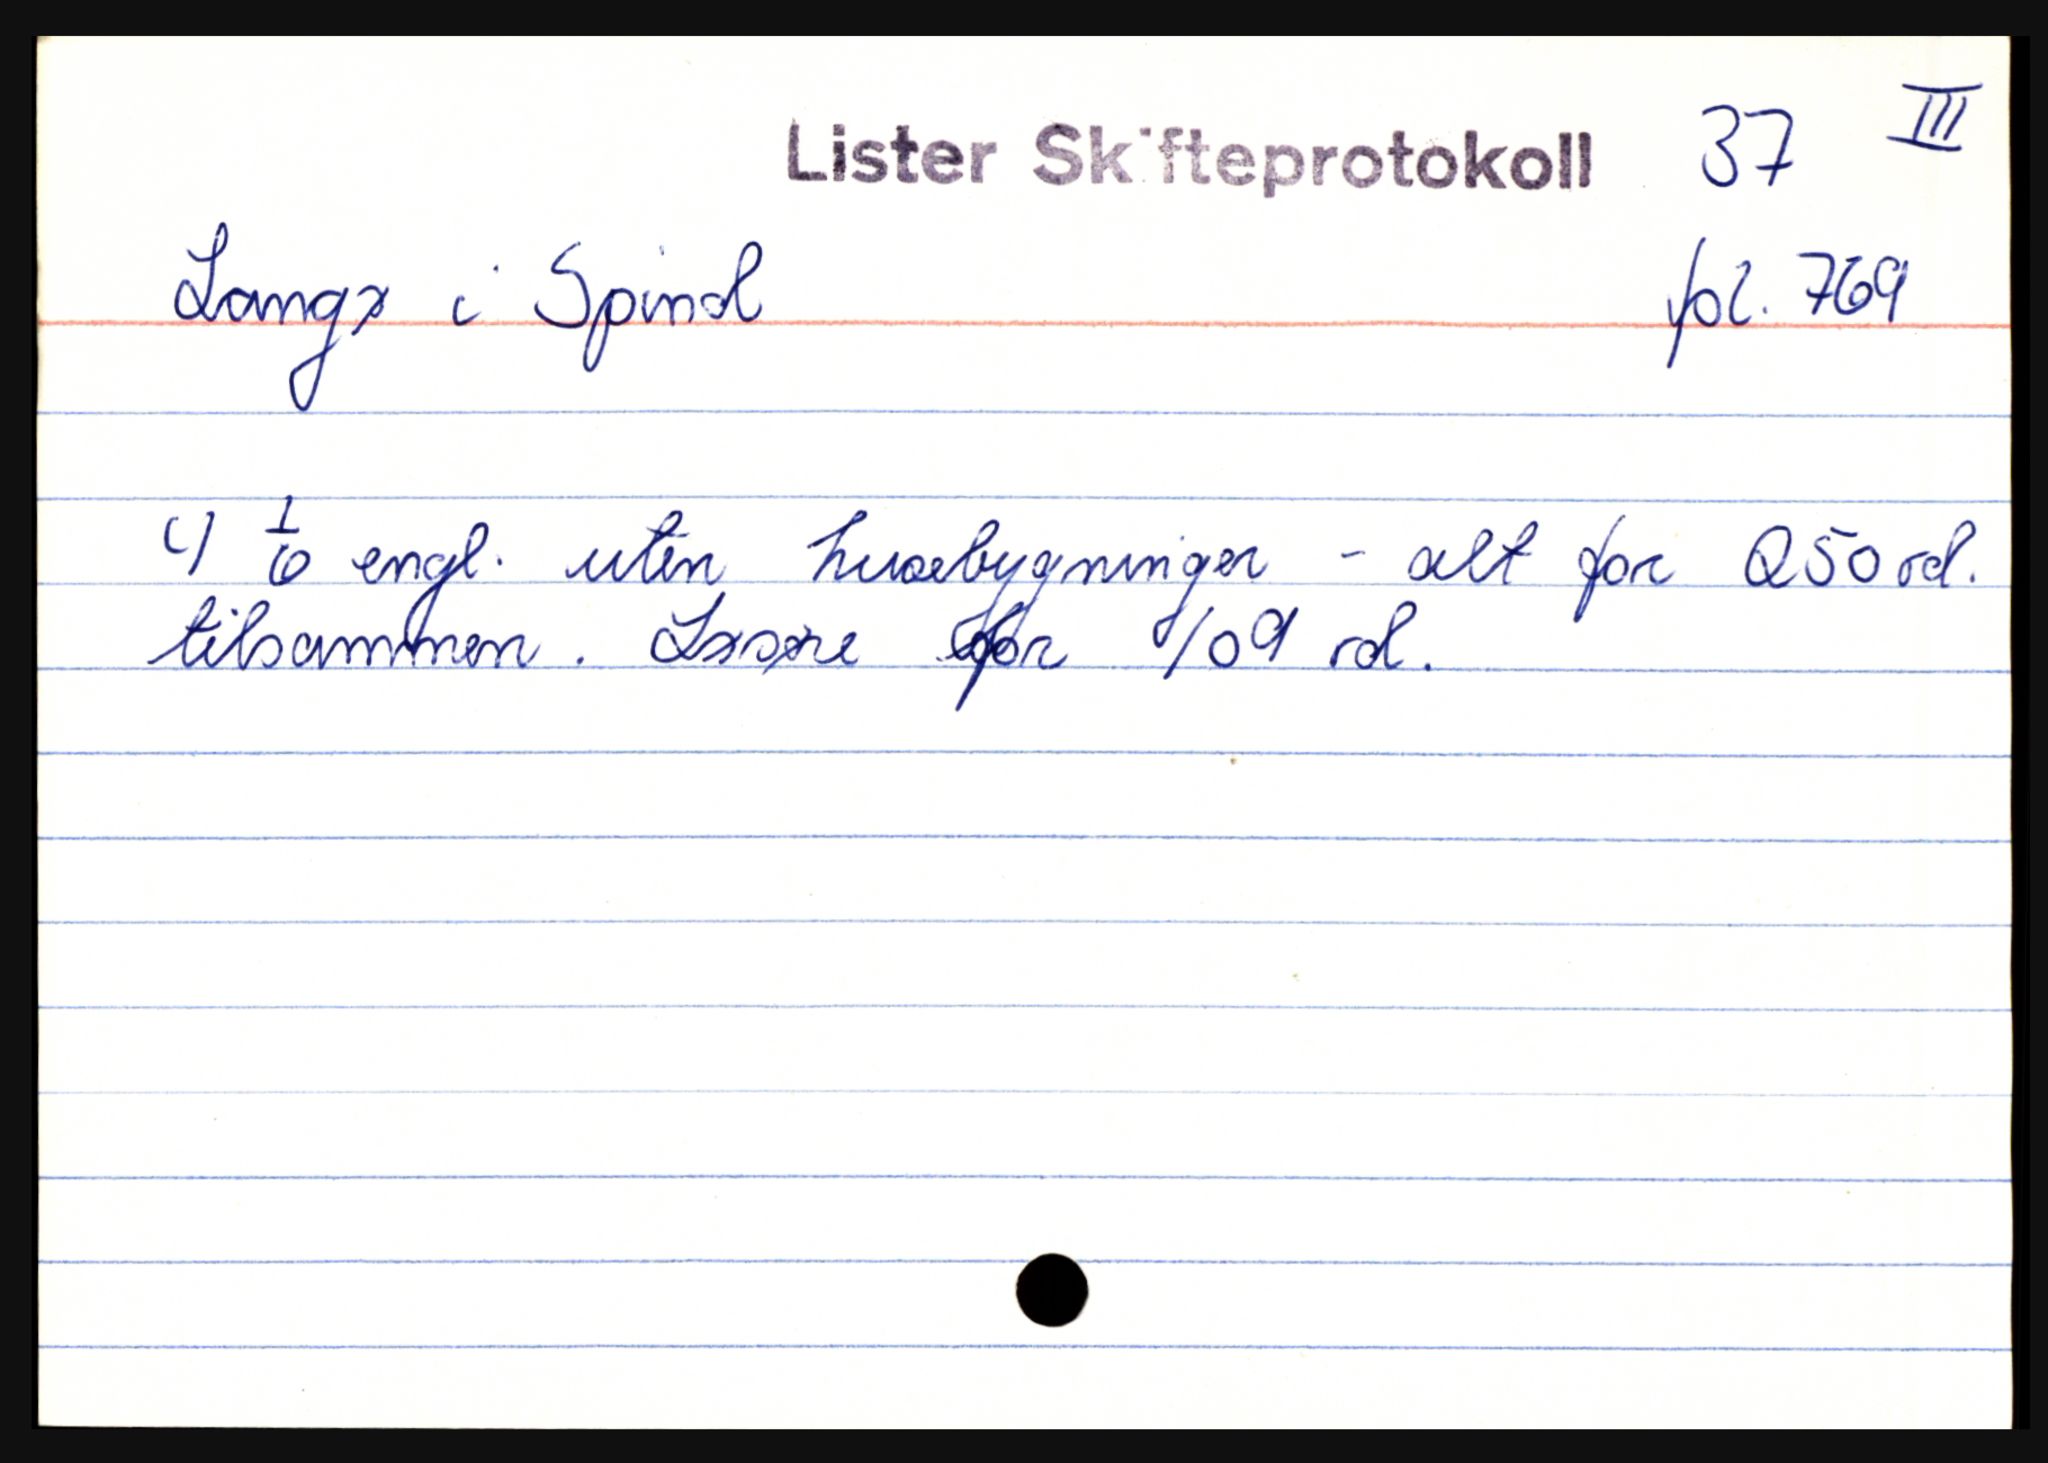 Lister Skifteprotokoll 37 III
Langø i Spind fol. 769
c) 1/6 engl. uten husebygninger - alt for 250 rd.
tilsammen. Løsøre for 109 rd.